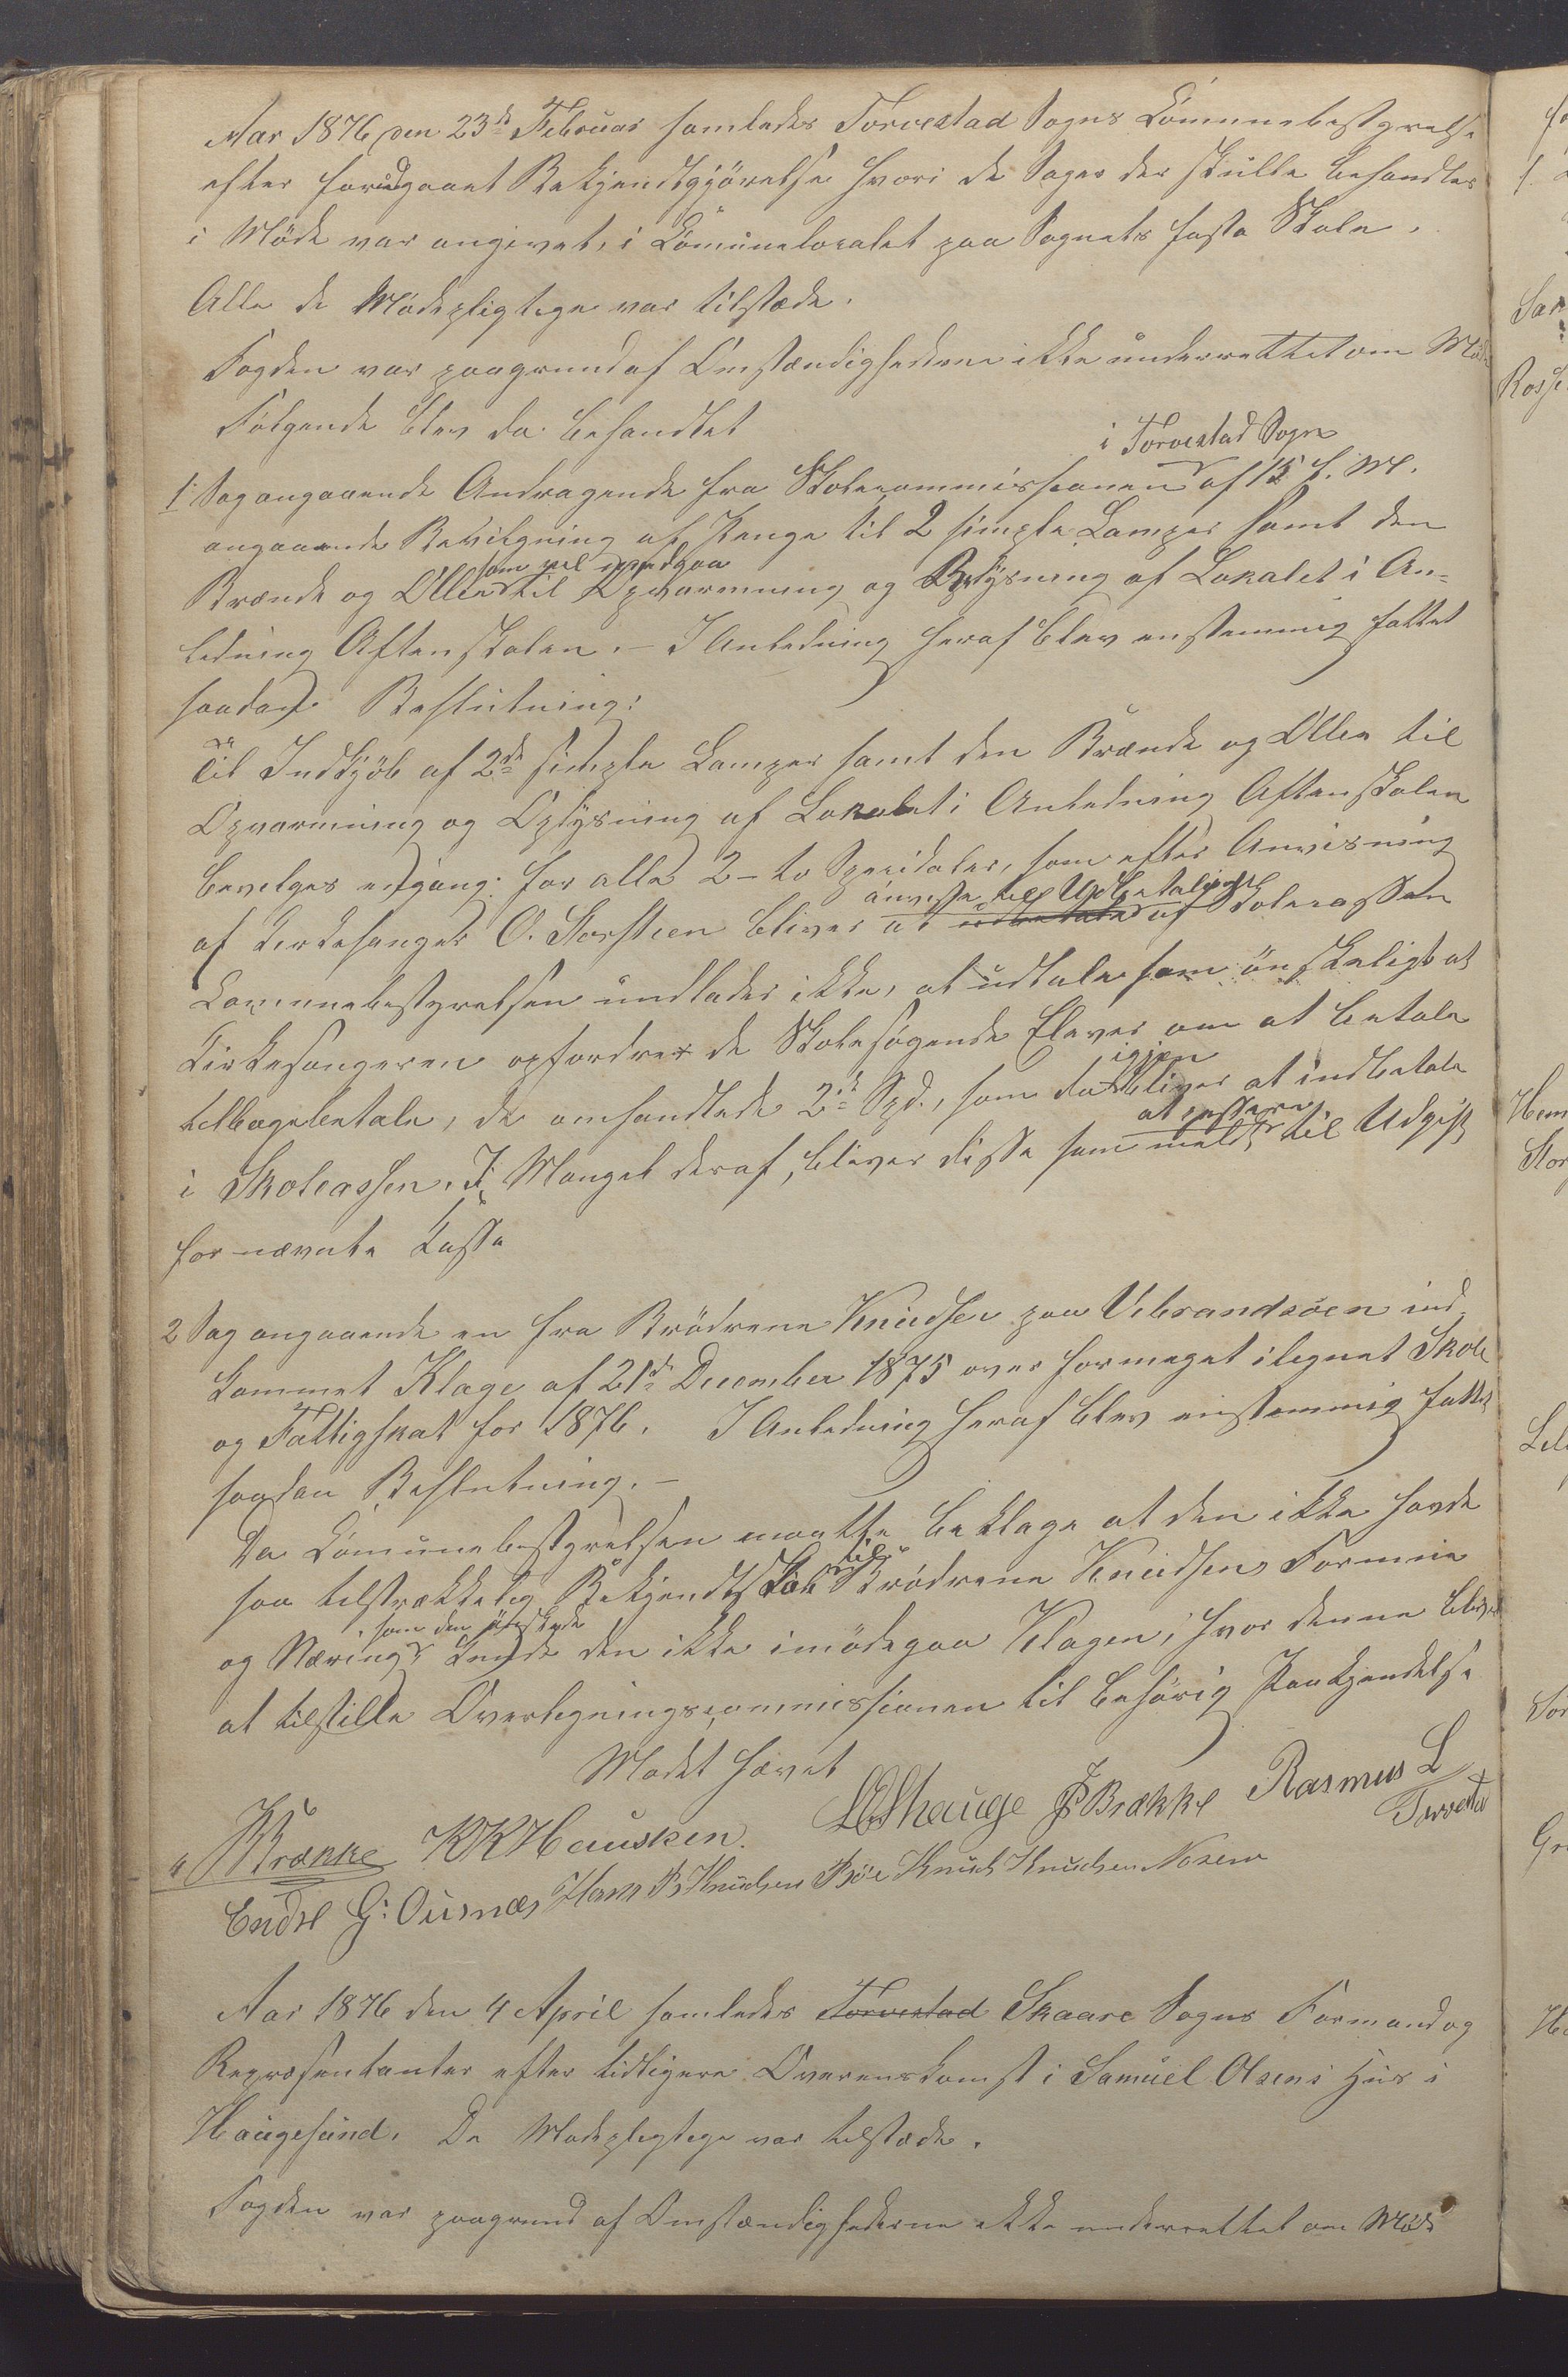 Aar 1876 den 23de Februar samledes Torvestad Sogns Communebestyrelse
efter forudgaaet Bekjendtgjörelse hvori de Sager der skulle behandles
i Möde var angivet, i Communelocalet paa Sognets faste Skole.
Alle de Mödepligtege var tilstæde.
Fogden var paagrund af Omstændighederne ikke underrettet om Möde
Følgende blev da behandlet
i Torvestad Sogn
1 Sag angaaende Andragende fra Skolecommissionen af 15 f. M.
angaaende Bevilgning af Penge til 2 simple Lamper samt den
som vil medgaa
Brænde og Ollie til Opvarmning og Oplysning af Lokalet i An-
ledning Aftenskolen. – I Anledning heraf blev enstemmig fattet
saadan Beslutning:
Til Indkjöb af 2de simple Lamper samt den Brænde og Ollie til
Opvarmning og Oplysning af Lokalet i Anledning Aftenskolen
bevelges engang for alle 2 – to Specidaler, som efter Anvisning
anvise till Udbetaling
af Kirkesanger O. Storsteen bliver at udbetale af Skolecassen
Communebestyrelsen undlader ikke, at udtale som önskeligt at
Kirkesangeren opfordrer de Skolesøgende Elever om at betale
igjen
tilbagebetale, de omhandlede 2de Spd., som da bliver at indbetale
at passere
i Skolecassen. I Mangel deraf, bliver disse som meldt til Udgift
for nævnte Kasse
2 Sag angaaende en fra Brödrene Knudsen paa Vibrandsöen ind-
kommet Klage af 21de December 1875 over formeget ilignet Skole
og Fattigskat for 1876. I Anledning heraf blev enstemmig fattet
saadan Beslutning. –
Da Communebestyrelsen maatte beklage at den ikke havde
til
saa tilstrækkelig Bekjendtskab Brödrene Knudsens Formue
, som den önskede
og Næring kunde den ikke imödegaa Klagen, hvor denne bliver
at tilstille Overligningscommissionen til behörig Paakjendelse
Mödet hævet
Brække K K Hausken. Lhauge J Brække Rasmus L
Torvestad
Endre G: Ousnæs Hans B Knudsen Böe Knud Knudsen Norem
Aar 1876 den 4 April samledes Torvestad Skaare Sogns Formand og
Repræsentanter efter tidligere Overenskomst i Samuel Olsens Hus i
Haugesund. De Mödeplegtege var tilstæde.
Fogden var paagrund af Omstændighederne ikke underrettet om Möde